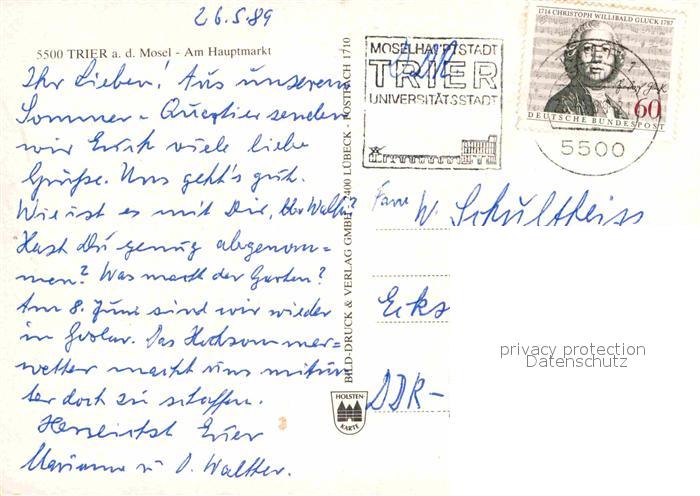 26.5.89
5500 TRIER a. d. Mosel - Am Hauptmarkt
Ihr Lieben! Aus unserem
Sommer-Quartier senden
wir Euch viele liebe
Grüße. Uns geht's gut.
Wie ist es mit Dir, lbr Walt.?
Hast Du genug abgenom=
men? Was macht der Garten?
Am 8. Juni sind wir wieder
in Goslar. Das Hochsommer=
wetter macht uns mitun
ter doch zu schaffen.
Herzlichst Euer
Marianne u. O. Walther.
BILD-DRUCK & VERLAG GMBH 2400 LÜBECK · POSTFACH 1710
HOLSTEN
KARTE
MOSELHAUPTSTADT
TRIER
UNIVERSITÄTSSTADT
1714 CHRISTOPH WILLIBALD GLUCK 1787
60
DEUTSCHE BUNDESPOST
5500
W. Schultheiss
Ecks
DDR-
privacy protection
Datenschutz